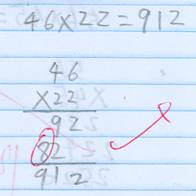 46×22=912
46
×22
92
82
912